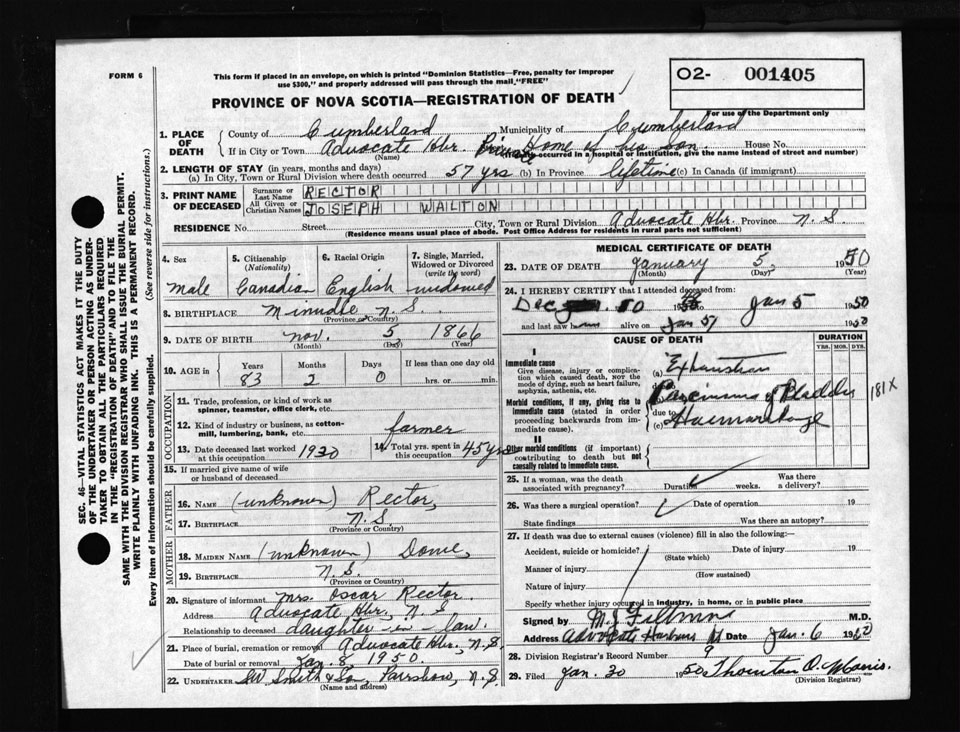 FORM 6
This form if placed in an envelope, on which is printed "Dominion Statistics—Free, penalty for improper
use $300," and properly addressed will pass through the mail "FREE"
O2- 001405
For use of the Department only
PROVINCE OF NOVA SCOTIA—REGISTRATION OF DEATH
1. PLACE OF DEATH County of Cumberland Municipality of Cumberland
If in City or Town Advocate Hbr. Home of his son. House No.
(Name) occurred in a hospital or institution, give the name instead of street and number)
2. LENGTH OF STAY (in years, months and days)
(a) In City, Town or Rural Division where death occurred 57 yrs (b) In Province lifetime (c) In Canada (if immigrant)
3. PRINT NAME OF DECEASED Surname or Last Name RECTOR
All Given or Christian Names JOSEPH WALTON
RESIDENCE No. Street City, Town or Rural Division Advocate Hbr. Province N.S.
(Residence means usual place of abode. Post Office Address for residents in rural parts not sufficient)
4. Sex 5. Citizenship (Nationality) 6. Racial Origin 7. Single, Married, Widowed or Divorced (write the word)
Male Canadian English widowed
8. BIRTHPLACE Minudie N.S.
(Province or Country)
9. DATE OF BIRTH Nov. 5 1866
(Month) (Day) (Year)
10. AGE in Years Months Days If less than one day old
83 2 0 hrs. or min.
OCCUPATION
11. Trade, profession, or kind of work as
spinner, teamster, office clerk, etc.
12. Kind of industry or business, as cotton-
mill, lumbering, bank, etc. farmer
13. Date deceased last worked at this occupation 1930 14. Total yrs. spent in this occupation 45 yrs
15. If married give name of wife
or husband of deceased
FATHER
16. NAME (unknown) Rector,
17. BIRTHPLACE N.S.
(Province or Country)
MOTHER
18. MAIDEN NAME (unknown) Dowe,
19. BIRTHPLACE N.S.
(Province or Country)
20. Signature of informant Mrs. Oscar Rector
Address Advocate Hbr, N.S
Relationship to deceased daughter-in-law.
21. Place of burial, cremation or removal Advocate Hbr, N.S.
Date of burial or removal Jan. 8, 1950.
22. UNDERTAKER Smith & Son, Parrsboro, N.S
(Name and address)
MEDICAL CERTIFICATE OF DEATH
23. DATE OF DEATH January 5 1950
(Month) (Day) (Year)
24. I HEREBY CERTIFY that I attended deceased from
Dec Jan 5 1950
and last saw alive on Jan 5 1950
CAUSE OF DEATH DURATION
YRS. MOS. DYS.
I
Immediate cause
Give disease, injury or complication which caused death, NOT the mode of dying, such as heart failure, asphyxia, asthenia, etc.
(a) Exhaustion
due to
Morbid conditions, if any, giving rise to immediate cause (stated in order proceeding backwards from immediate cause).
Carcinoma of Bladder 181X
due to
(c) Haemorrhage
II
Other morbid conditions (if important) contributing to death but not causally related to immediate cause.
25. If a woman, was the death associated with pregnancy? Duration weeks. Was there a delivery?
26. Was there a surgical operation? Date of operation 19
State findings Was there an autopsy?
27. If death was due to external causes (violence) fill in also the following:—
Accident, suicide or homicide? Date of injury 19
(State which)
Manner of injury
(How sustained)
Nature of injury
Specify whether injury occurred in industry, in home, or in public place
Signed by M.D.
Address Advocate Harbour Date Jan. 6 1950
28. Division Registrar's Record Number 9
29. Filed Jan. 30 1950 Thornton O. Morris.
(Division Registrar)
SEC. 46—VITAL STATISTICS ACT MAKES IT THE DUTY
OF THE UNDERTAKER OR PERSON ACTING AS UNDER-
TAKER TO OBTAIN ALL THE PARTICULARS REQUIRED
IN THE "REGISTRATION OF DEATH" AND TO FILE THE
SAME WITH THE DIVISION REGISTRAR WHO SHALL ISSUE THE BURIAL PERMIT.
WRITE PLAINLY WITH UNFADING INK. THIS IS A PERMANENT RECORD.
Every item of information should be carefully supplied. (See reverse side for instructions.)